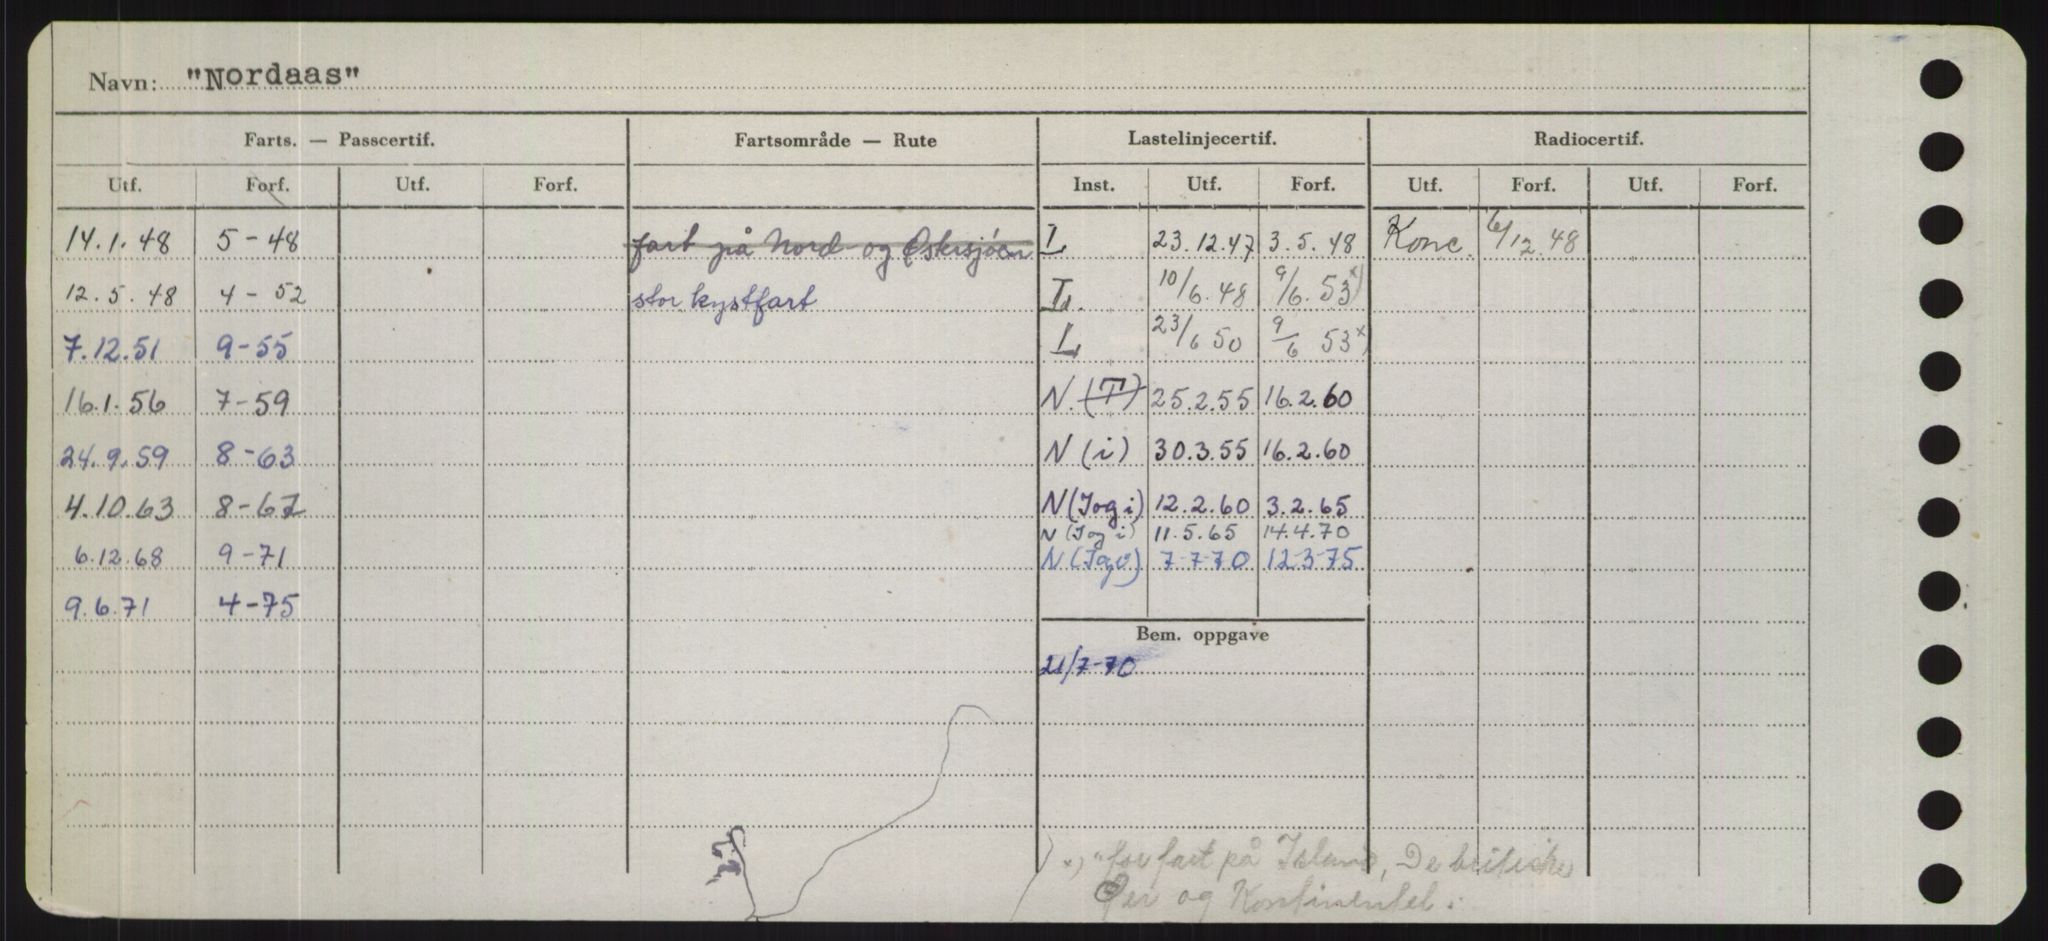 Navn: "Nordaas"
Farts. — Passcertif. Fartsområde — Rute Lastelinjecertif. Radiocertif.
Utf. Forf. Utf. Forf. Inst. Utf. Forf. Utf. Forf. Utf. Forf.
14.1.48 5-48 fart på Nord- og Østersjøen L 23.12.47 3.5.48 Konc. 6/12.48
12.5.48 4-52 stor kystfart L. 10/6.48 9/6.53 x)
7.12.51 9-55 L 23/6 50 9/6 53 x)
16.1.56 7-59 N. (T) 25.2.55 16.2.60
24.9.59 8-63 N (i) 30.3.55 16.2.60
4.10.63 8-67 N (I og i) 12.2.60 3.2.65
N (I og i) 11.5.65 14.4.70
6.12.68 9-71 N (I o) 7-7-70 12-3-75
9.6.71 4-75
Bem. oppgave
21/7-70
x) "for fart på Island, De britiske
Øer og Kontinentet.